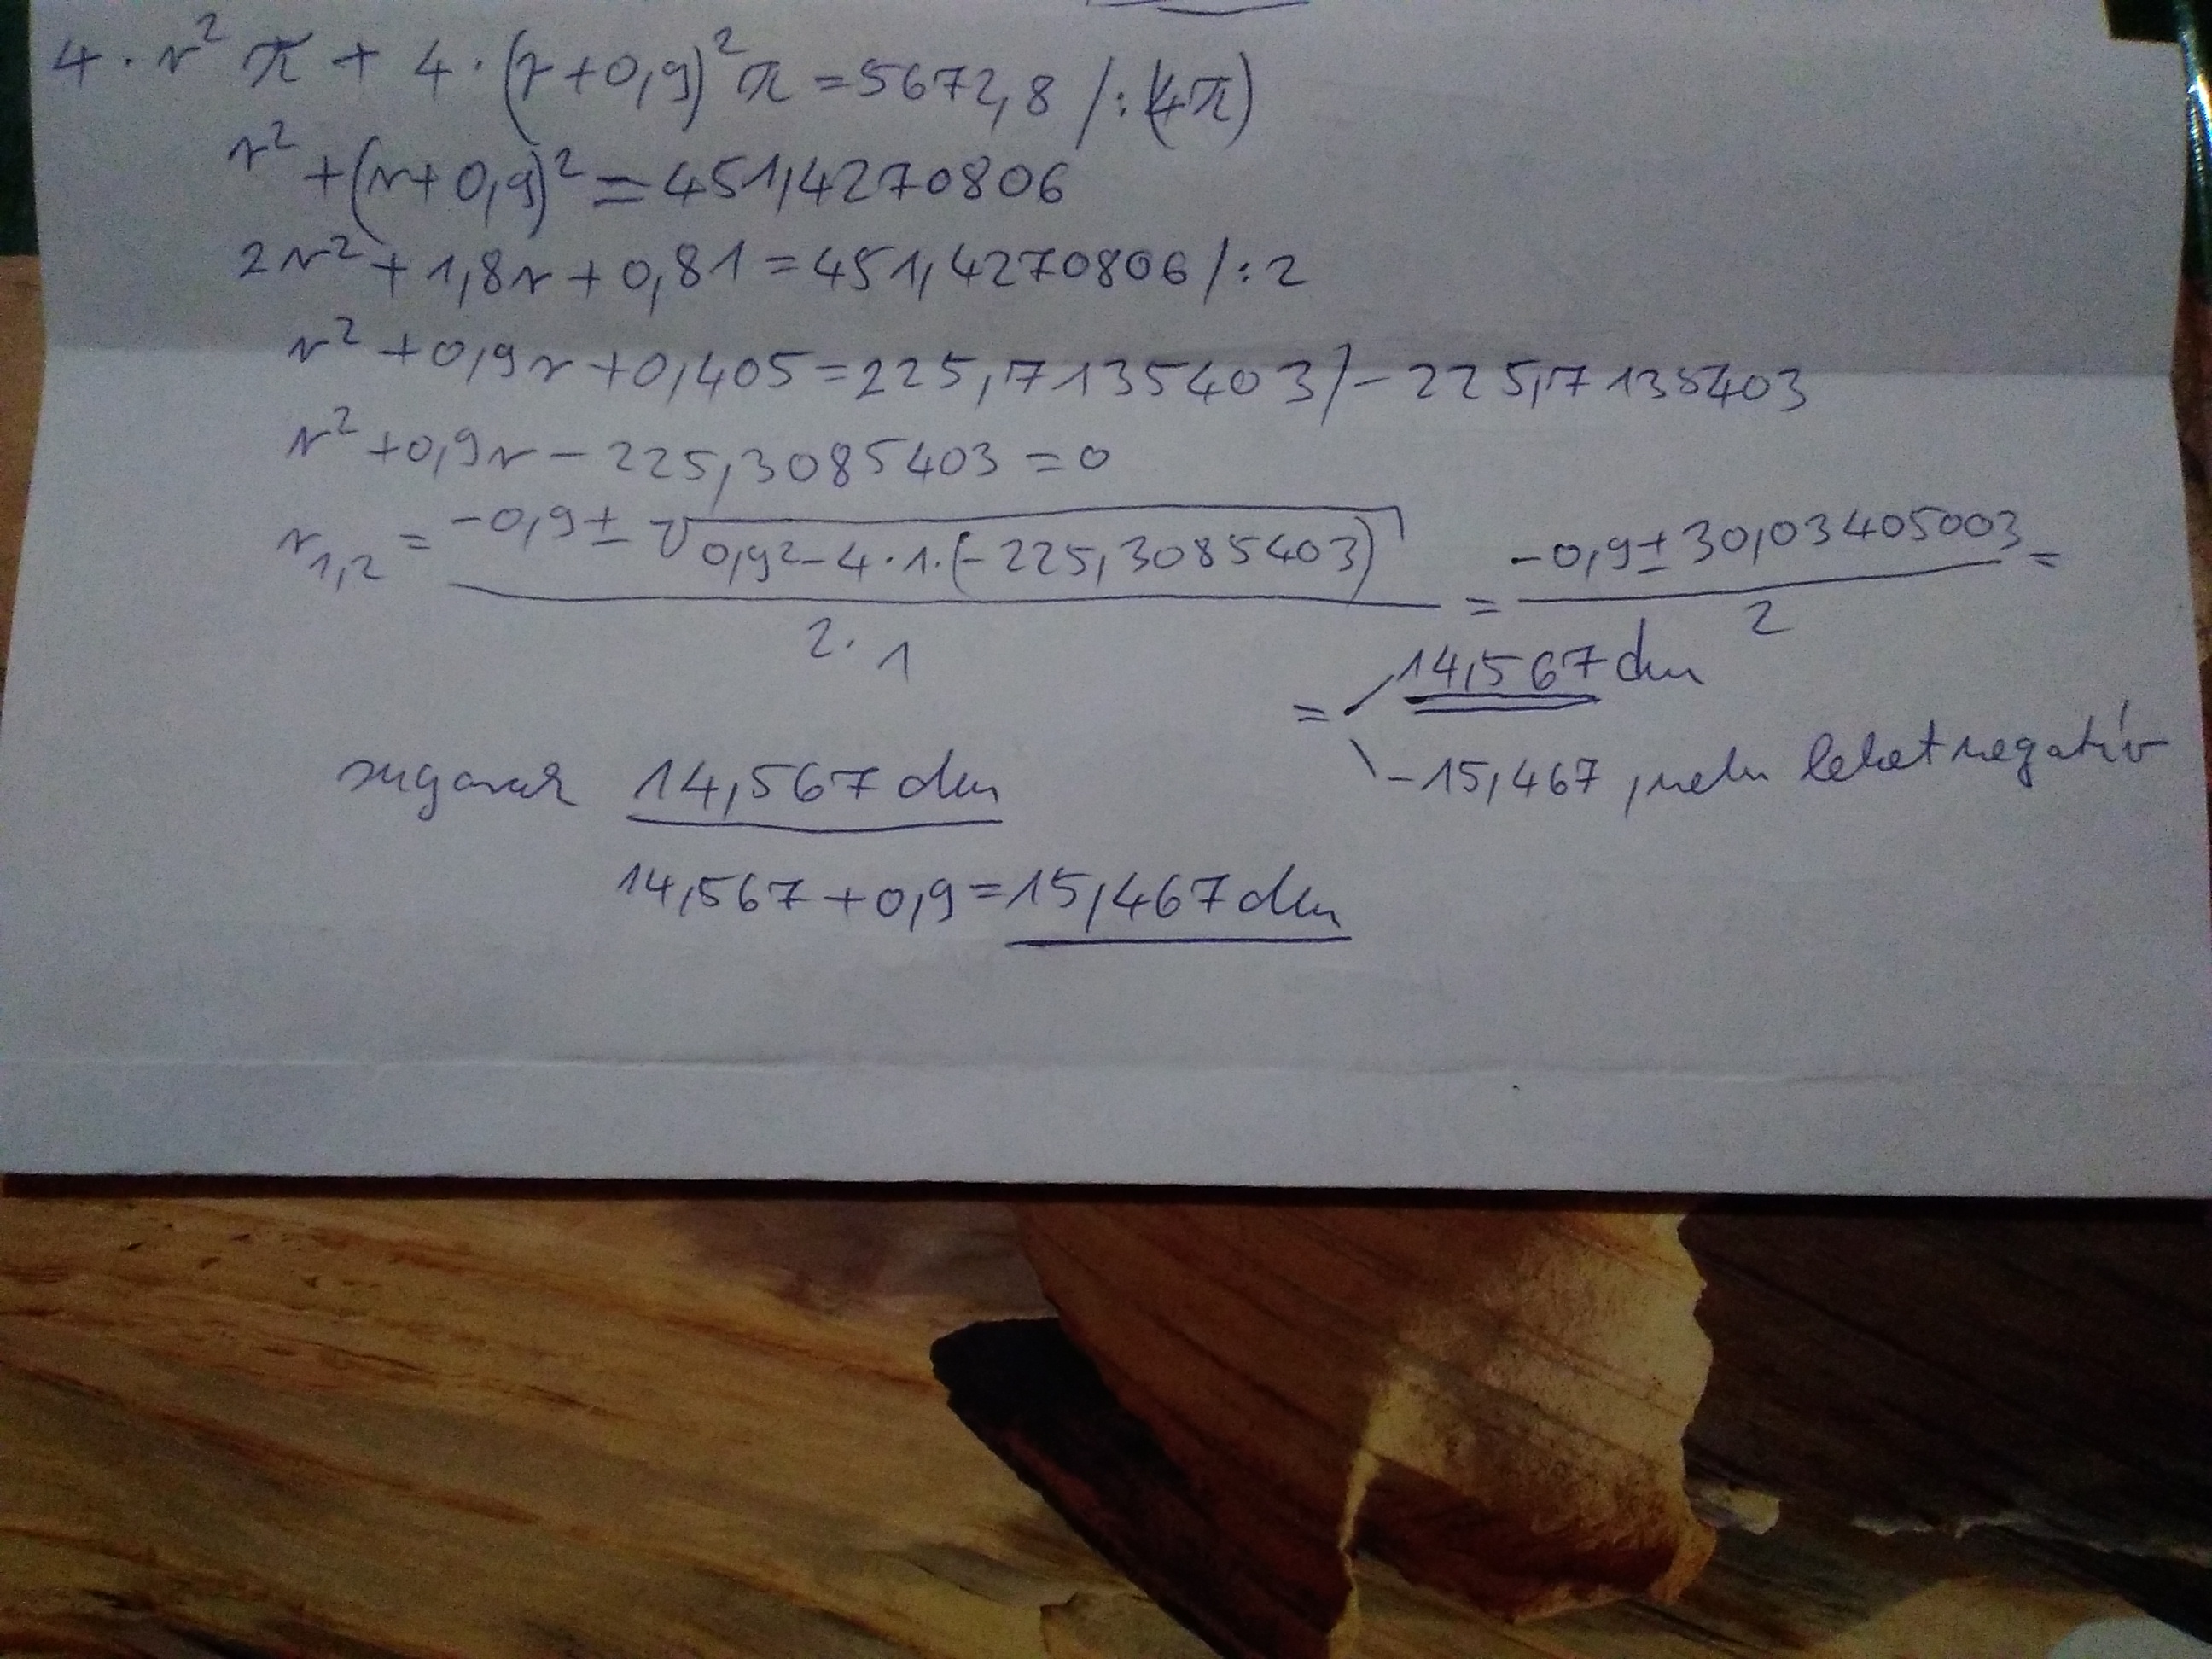 4 · r² π + 4 · (r+0,9)² π = 5672,8 /:(4π)
r² + (r+0,9)² = 451,4270806
2r² + 1,8r + 0,81 = 451,4270806 /:2
r² + 0,9r + 0,405 = 225,7135403 /- 225,7135403
r² + 0,9r - 225,3085403 = 0
r₁,₂ = (-0,9 ± √(0,9² - 4·1·(-225,3085403))) / (2·1) = (-0,9 ± 30,03405003) / 2 =
= 14,567 dm
-15,467, nem lehet negatív
sugarak 14,567 dm
14,567 + 0,9 = 15,467 dm